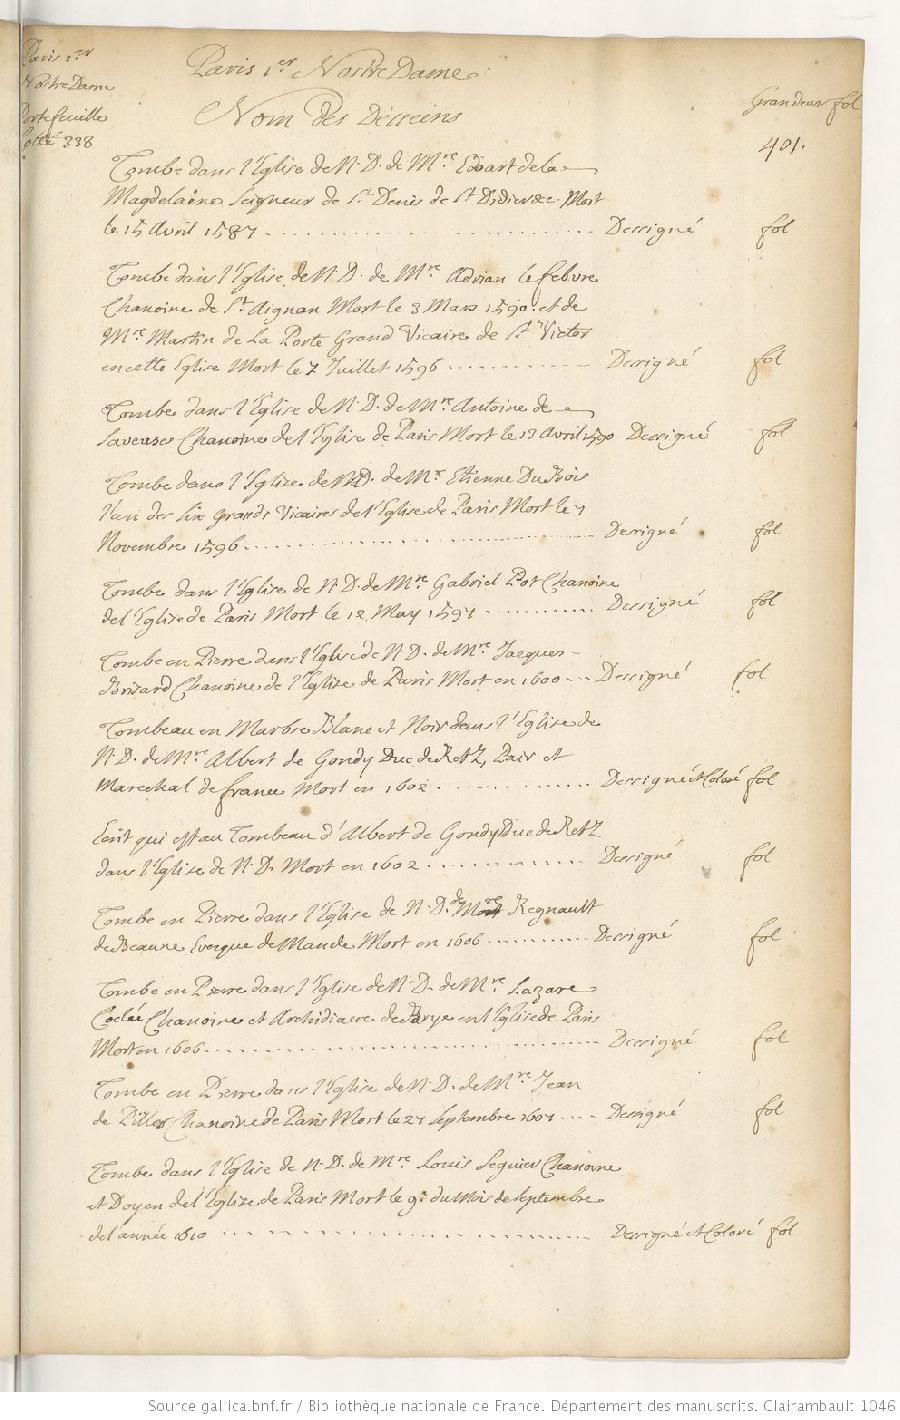 Paris 1.er
Nostre Dame
Portefeuille
Cotté 238
Paris 1.er Nostre Dame
Nom des Desseins
Grandeur fol
401.
Tombe dans l'Eglise de N. D. de M.re Edoart de la
Magdelaine Seigneur de S.t Denis de S.t Didier &c. Mort
le 15 Avril 1587 Dessigné fol
Tombe dans l'Eglise de N. D. de M.re Adrian le febvre
Chanoine de S.t Aignan Mort le 3 Mars 1590. et de
M.re Martin de La Porte Grand Vicaire de S.t Victor
en cette Eglise Mort le 7 Juillet 1596 Dessigné fol
Tombe dans l'Eglise de N. D. de M.re Antoine de
Saveuses Chanoine de l'Eglise de Paris Mort le 13 Avril 1590 Dessigné fol
Tombe dans l'Eglise de N. D. de M.re Etienne Du Bois
l'un des six grands Vicaires de l'Eglise de Paris Mort le 7
Novembre 1596 Dessigné fol
Tombe dans l'Eglise de N. D. de M.re Gabriel Pot Chanoine
de l'Eglise de Paris Mort le 12 May 1597 Dessigné fol
Tombe en Pierre dans l'Eglise de N. D. de M.re Jacques
Brizard Chanoine de l'Eglise de Paris Mort en 1600 Dessigné fol
Tombeau en Marbre Blanc et Noir dans l'Eglise de
N. D. de M.re Albert de Gondy Duc de Retz, Pair et
Marechal de france Mort en 1602 Dessigné et Coloré fol
Ecrit qui est au Tombeau d'Albert de Gondy Duc de Retz
dans l'Eglise de N. D. Mort en 1602 Dessigné fol
Tombe en Pierre dans l'Eglise de N. D. de M.re Regnault
de Beaune Evesque de Mande Mort en 1606 Dessigné fol
Tombe en Pierre dans l'Eglise de N. D. de M.re Lazare
Coclée Chanoine et Archidiacre de Brye en l'Eglise de Paris
Mort en 1606 Dessigné fol
Tombe en Pierre dans l'Eglise de N. D. de M.re Jean
de Pilles Chanoine de Paris Mort le 27 Septembre 1607 Dessigné fol
Tombe dans l'Eglise de N. D. de M.re Louis Seguier Chanoine
et Doyen de l'Eglise de Paris Mort le 9.e du Mois de Septembre
de l'année 1610 Dessigné et Coloré fol
Source gallica.bnf.fr / Bibliothèque nationale de France. Département des manuscrits. Clairambault 1046